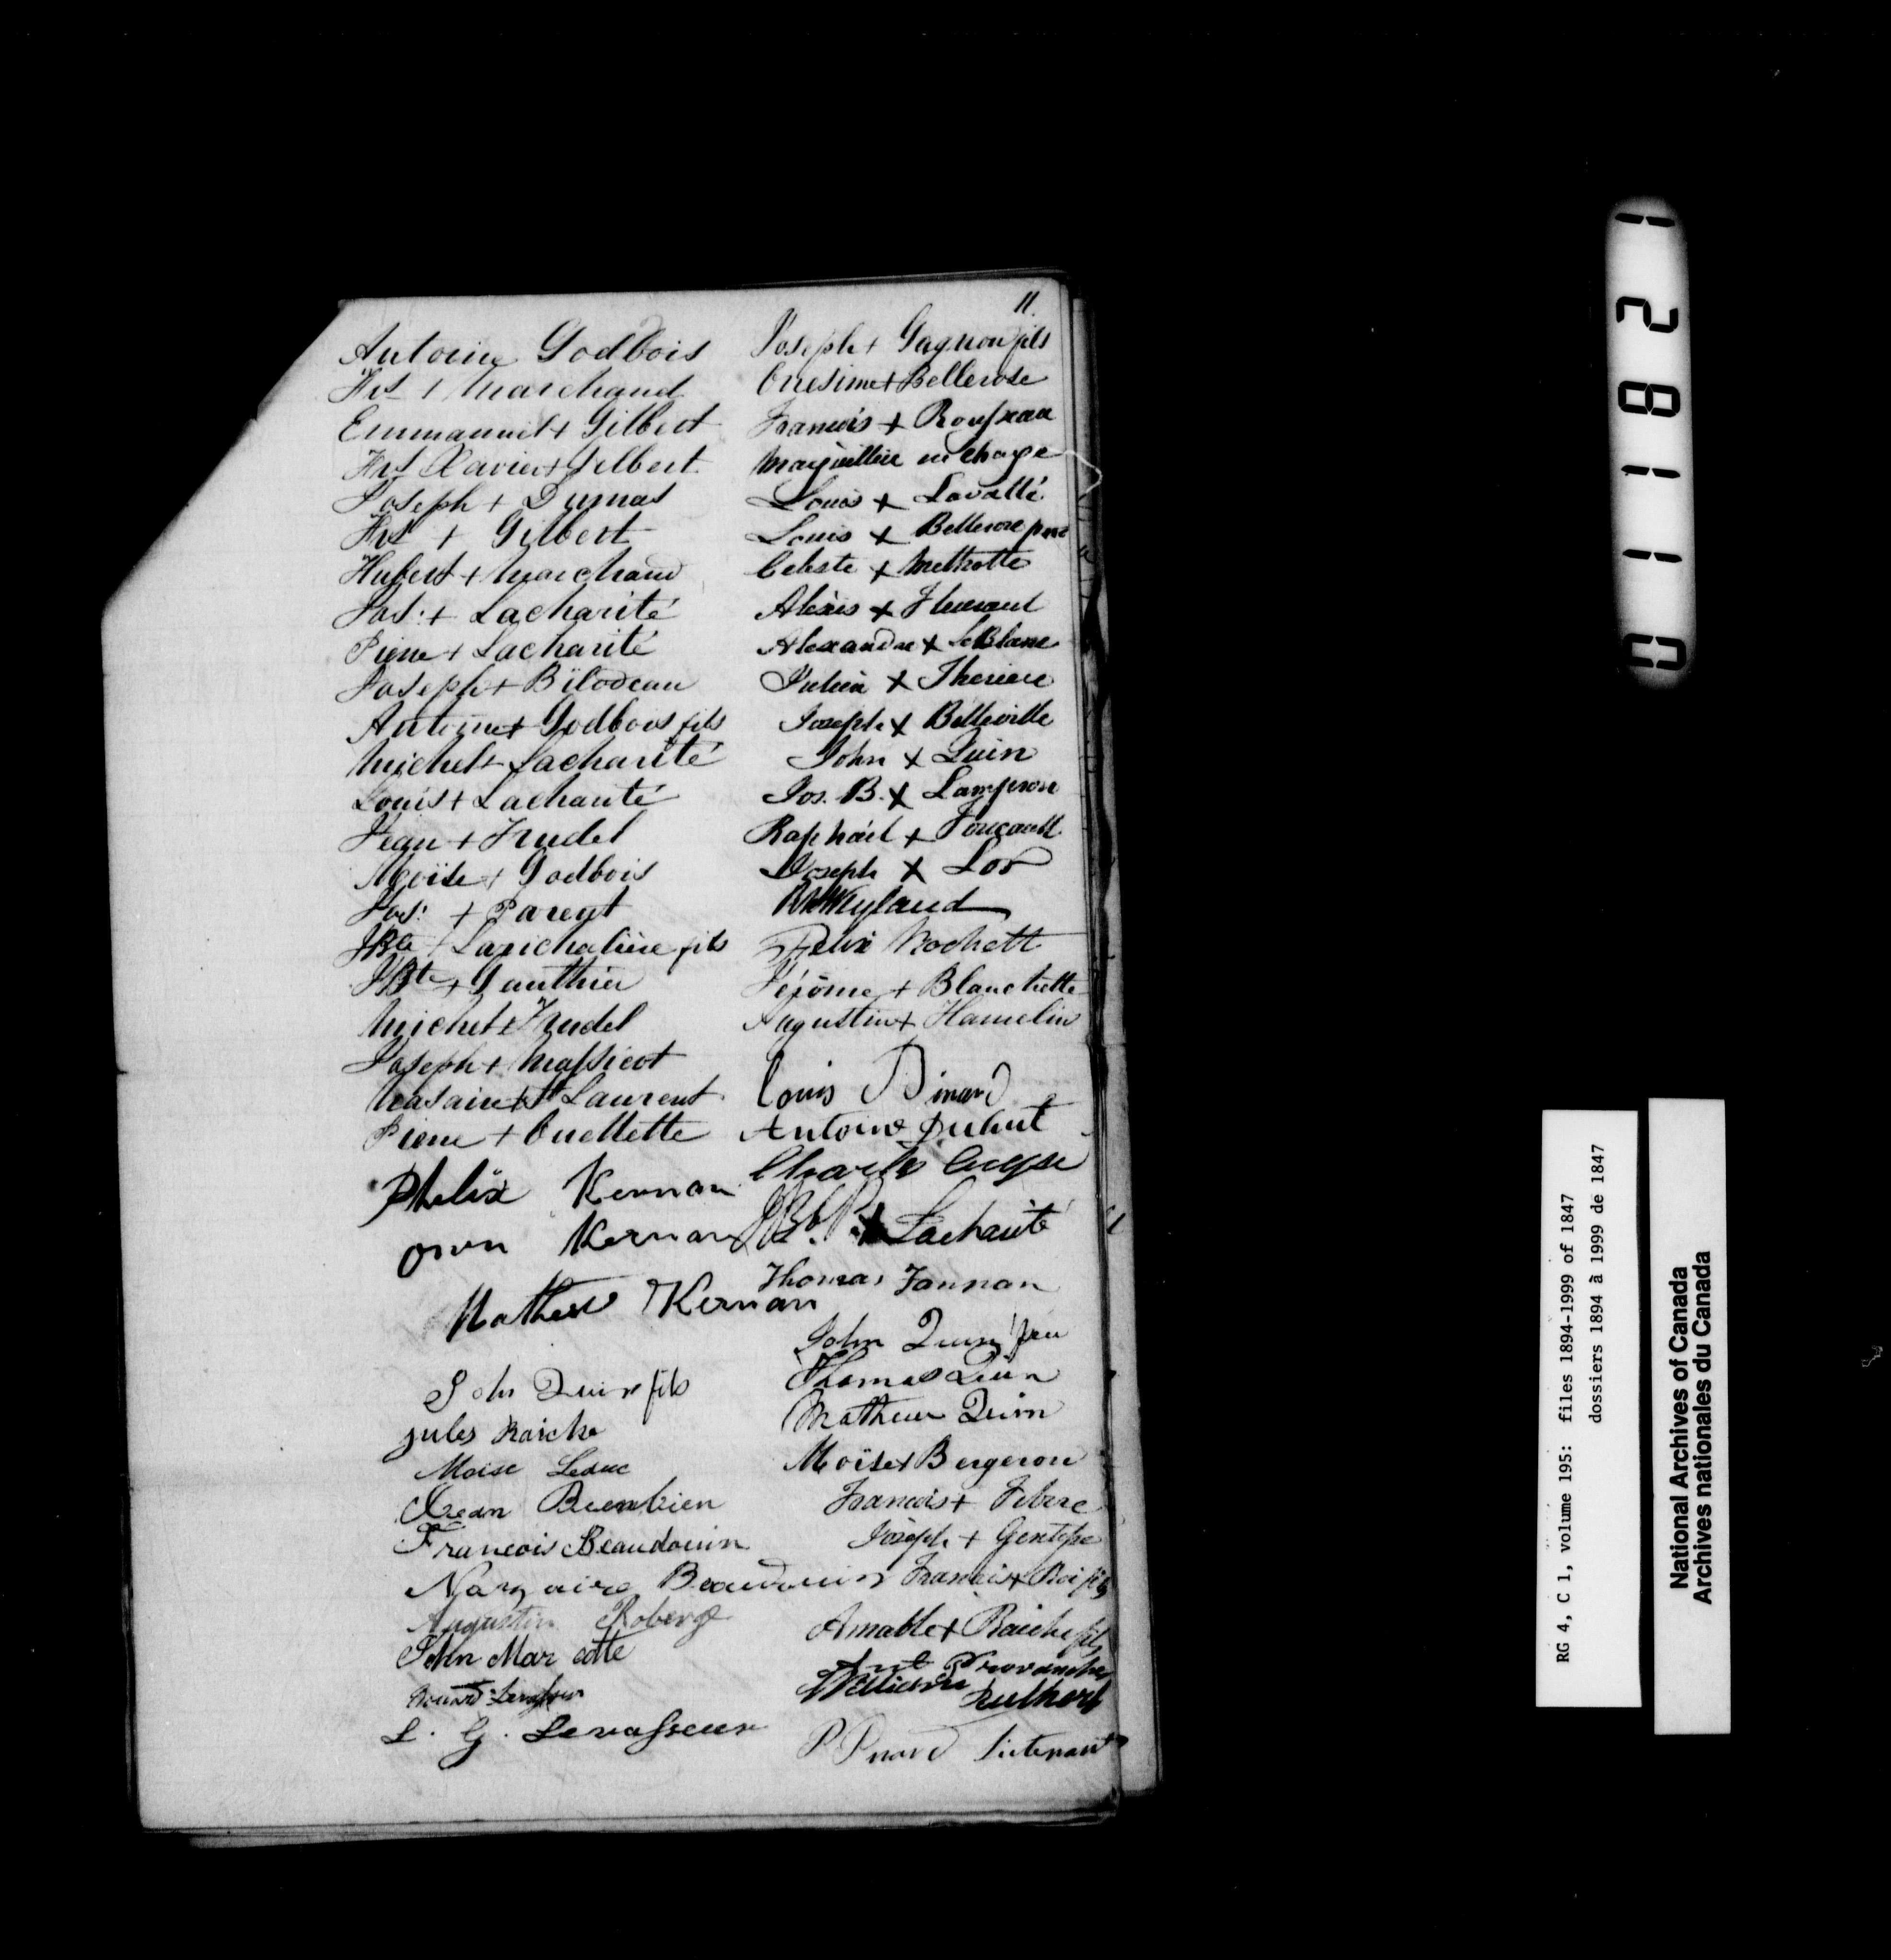 11.
Antoine Godbois
Frs + Marchand
Emmanuel + Gilbert
Frs Xavier + Gilbert
Joseph + Dumas
Frs + Gilbert
Hubert + Marchand
Jos. + Lacharité
Pierre + Lacharité
Joseph + Bilodeau
Antoine + Godbois fils
Michel + Lacharité
Louis + Lacharité
Jean + Trudel
Moïse + Godbois
Jos. + Parent
JBte + fils
JBte + Gauthier
Michel + Trudel
Joseph + Massicot
+ St Laurent
Pierre + Ouellette
Phelix Kernan
Owen Kernan
Mathew Kernan
John Quinn fils
Jules Raiche
Moise Leduc
Jean Beaubien
Francois Beaudouin
Beaudouin
Augustin Roberge
John Marcotte
Levasseur
L. G. Levasseur
Joseph + Gagnon fils
Onesime + Bellerose
Francois + Rousseau
Marguillier en charge
Louis + Lavallé
Louis + Bellerose pere
Celeste + Methotte
Alexis + Fleurant
Alexandre + LeBlanc
Julien + Therien
Joseph + Belleville
John + Quin
Jos. B. + Lamprone
Raphaël + Foucault
Joseph + Lor
Ryland
Felix Rochett
Jérôme + Blanchette
Augustin + Hamelin
Louis Pinard
Antoine Duhut
Charles
JBte P. + Lacharité
Thomas Fannan
John Quinn
Thomas Quin
Mathew Quinn
Moïse + Bergeron
Francois + Febvre
Joseph + Gentesse
Francois + Roi fils
Amable + Raiche fils
Ant Provancher
William Rutherf
P Pinard Lieutenant
01182 1
RG 4, C 1, volume 195: files 1894-1999 of 1847
dossiers 1894 à 1999 de 1847
National Archives of Canada
Archives nationales du Canada